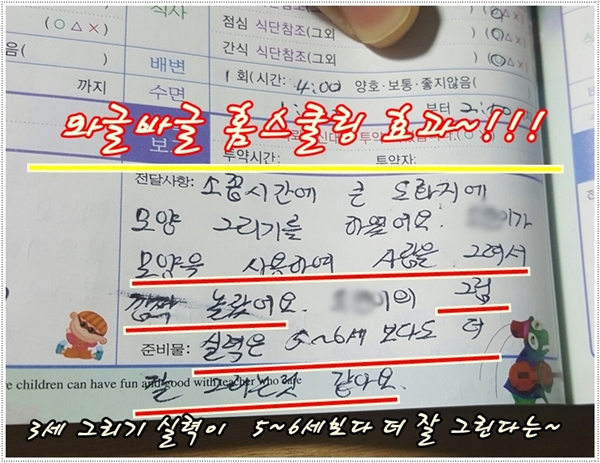 식사
(○△×)
점심 식단참조(그외
(○△×)
간식 식단참조(그외
(○△×)
배변
1회(시간: 4:00 양호·보통·좋지않음(
까지
수면
부터 2:
와글바글 홈스쿨링 효과~!!!
보
투약시간: 투약자:
전달사항: 소꿉시간에 큰 도화지에
모양 그리기를 하였어요. 이가
모양을 사용하여 사람을 그려서
깜짝 놀랐어요. 이의 그림
준비물: 실력은 5~6세 보다도 더
잘 그리는것 같아요.
e children can have fun and good with teacher who care
3세 그리기 실력이 5~6세보다 더 잘 그린다는~